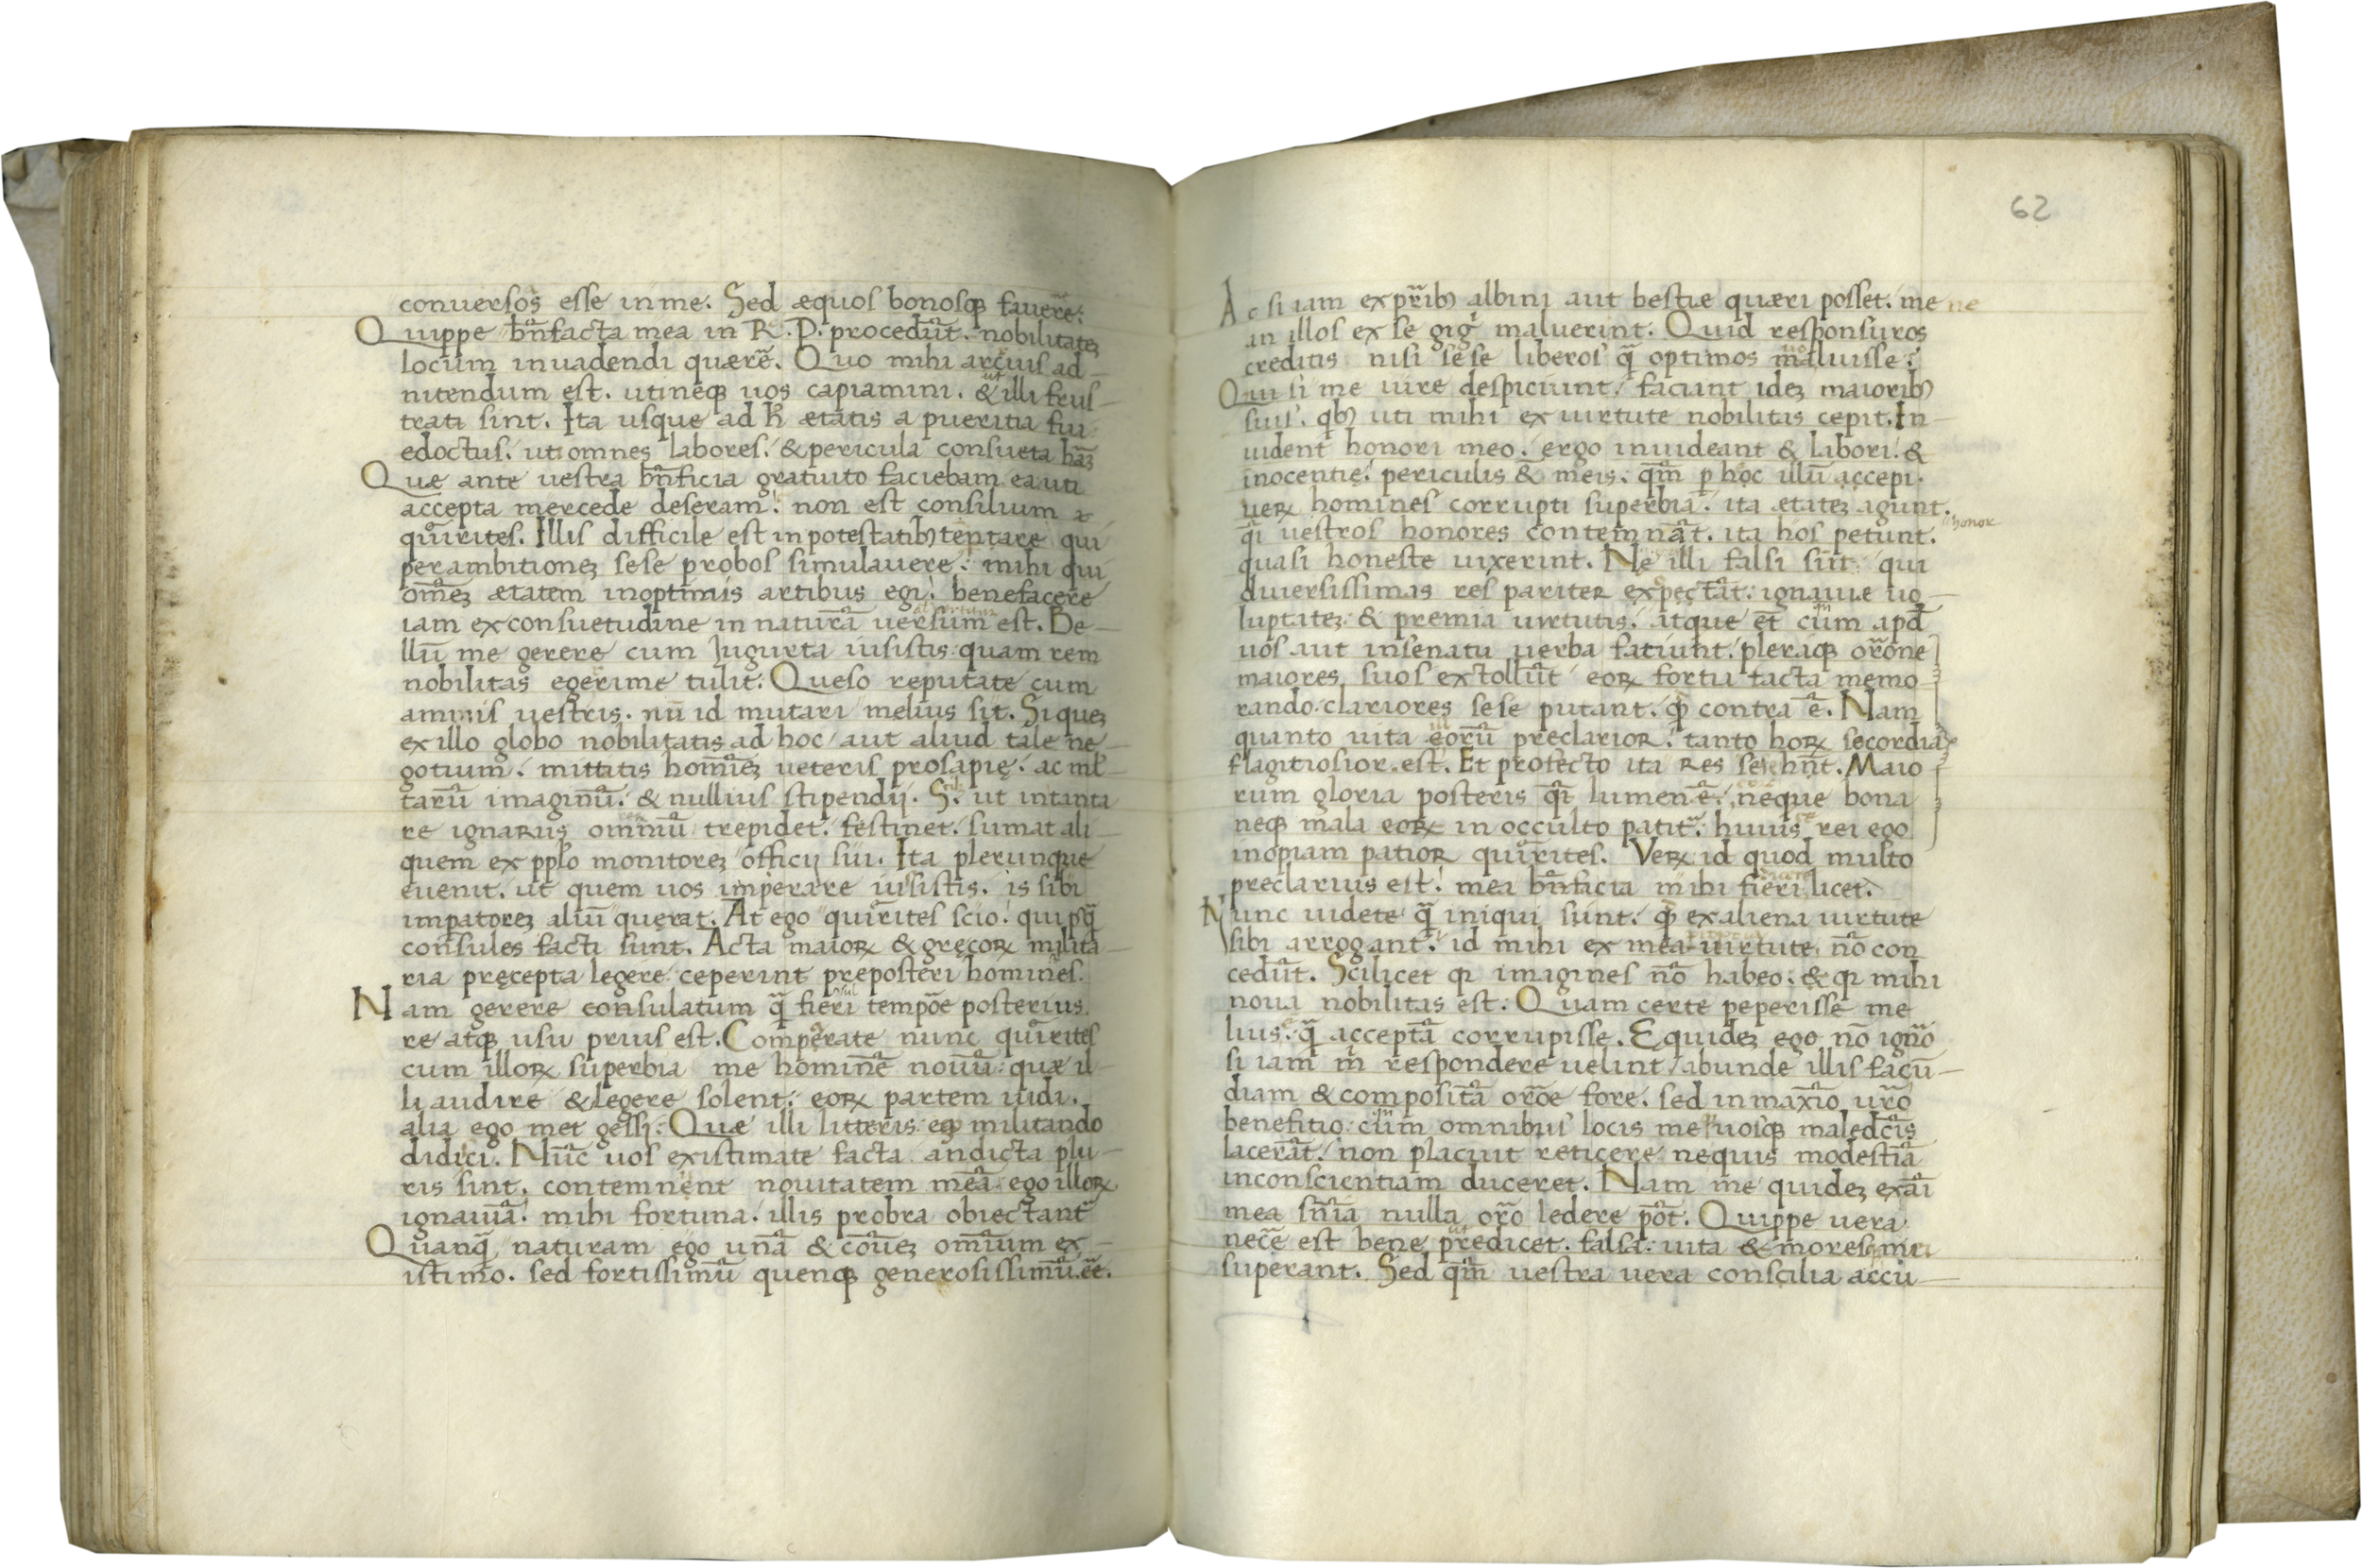 conuersos esse in me. Sed æquos bonosqꝫ fauere᷉:
Quippe bn̄facta mea in R. P. procedūt. nobilitateꝫ
locum inuadendi quærē. Quo mihi arcuis ad-
nitendum est. uti neqꝫ uos capiamini. & illi frus-
trati sint. Ita usque ad h̄ ætatis a pueritia fui
edoctus. ut omnes labores. & pericula consueta hāꝫ
Quæ ante uestra bn̄ficia gratuito faciebam ea uti
accepta mercede deseram. non est consilium
qūrites. Illis difficile est in potestatibꝫ temptare qui
per ambitioneꝫ sese probos simulauere: mihi qui
om̄eꝫ ætatem in optimis artibus egi. benefacere
iam ex consuetudine in naturā uersum est. Be-
llū me gerere cum Iugurta iusistis quam rem
nobilitas egerime tulit: Queso reputate cum
animis uestris. nū id mutari melius sit. Si queꝫ
ex illo globo nobilitatis ad hoc aut aliud tale ne-
gotium. mittatis homīeꝫ ueteris prosapię. ac ml̄-
tarū imaginū. & nullius stipendij. S. ut in tanta
re ignarus omniū trepidet. festinet. sumat ali-
quem ex pplo monitoreꝫ officij sui. Ita plerunque
euenit. ut quem uos imperare iusistis. is sibi
impatoreꝫ aliū querat. At ego quirites scio. qui psq̄
consules facti sunt. Acta maioꝝ & gręcoꝝ milita-
ria pręcepta legere ceperint preposteri homines.
Nam gerere consulatum q̄ fieri tempōe posterius.
re atqꝫ usu prius est. Comperate nunc quirites
cum illoꝝ superbia me hominē nouū. quæ il-
li audire & legere solent. eoꝝ partem uidi.
alia ego met gessi. Quæ illi litteris eqꝫ militando
didici. Nūc uos existimate facta an dicta plu-
ris sint. contemnent nouitatem meā. ego illoꝝ
ignauiā. mihi fortuna. illis probra obiectant
Quanq̄ naturam ego unā & cōueꝫ omīum ex-
istimo. sed fortissimū quenqꝫ generosissimū. ēē.
62
Ac si iam ex pr̄ibꝫ albini aut bestiæ quæri posset. me ne
an illos ex se gig maluerint. Quid responsuros
creditis nisi sese liberos q̄ optimos maluisse.
Qui si me iure despiciunt. faciant ideꝫ maioribꝫ
suis. qbꝫ uti mihi ex uirtute nobilitas cepit. In-
uident honori meo. ergo inuideant & labori. &
inocentię. periculis & meis. qm̄ p hoc illū accepi.
ueꝝ homines corrupti superbia. ita etateꝫ agunt.
q̄i uestros honores contemnāt. ita hos petunt. honor
quasi honeste uixerint. Ne illi falsi sūt qui
diuersissimas res pariter expectāt. ignauie uo-
luptateꝫ & premia uirtutis. atque ēt cum apd
uos aut in senatu uerba fatiunt. pleraqꝫ orōne
maiores suos extollūt eoꝝ fortii facta memo-
rando. clariores sese putant. qꝫ contra ē. Nam
quanto uita eorū preclarior. tanto hoꝝ secordia
flagitiosior est. Et profecto ita res sese hn̄t. Maio
rum gloria posteris q̄i lumen ē. neque bona
neqꝫ mala eoꝝ in occulto patit. huius rei ego
inopiam patior quirites. Veꝝ id quod multo
preclarius est. mea bn̄ficia mihi fieri licet.
Nunc uidete q̄ iniqui sunt. qꝫ ex aliena uirtute
sibi arrogant. id mihi ex mea uirtute nō con
cedūt. Scilicet qꝛ imagines nō habeo. & qꝛ mihi
noua nobilitas est. Quam certe peperisse me
lius. q̄ acceptā corrupisse. Equideꝫ ego nō ignō
si iam m̄ respondere uelint abunde illis facū-
diam & compositā orōe fore. sed in maxīo urō
benefitio cum omnibus locis me uosqꝫ maledcīs
lacerāt. non placuit reticere nequis modestiā
in conscientiam duceret. Nam me quideꝫ ex aī
mea sn̄ia nulla orō ledere pōt. Quippe uera
necē est bene predicet. falsa. uita & mores mei
superant. Sed qm̄ uestra uera conscilia accu-